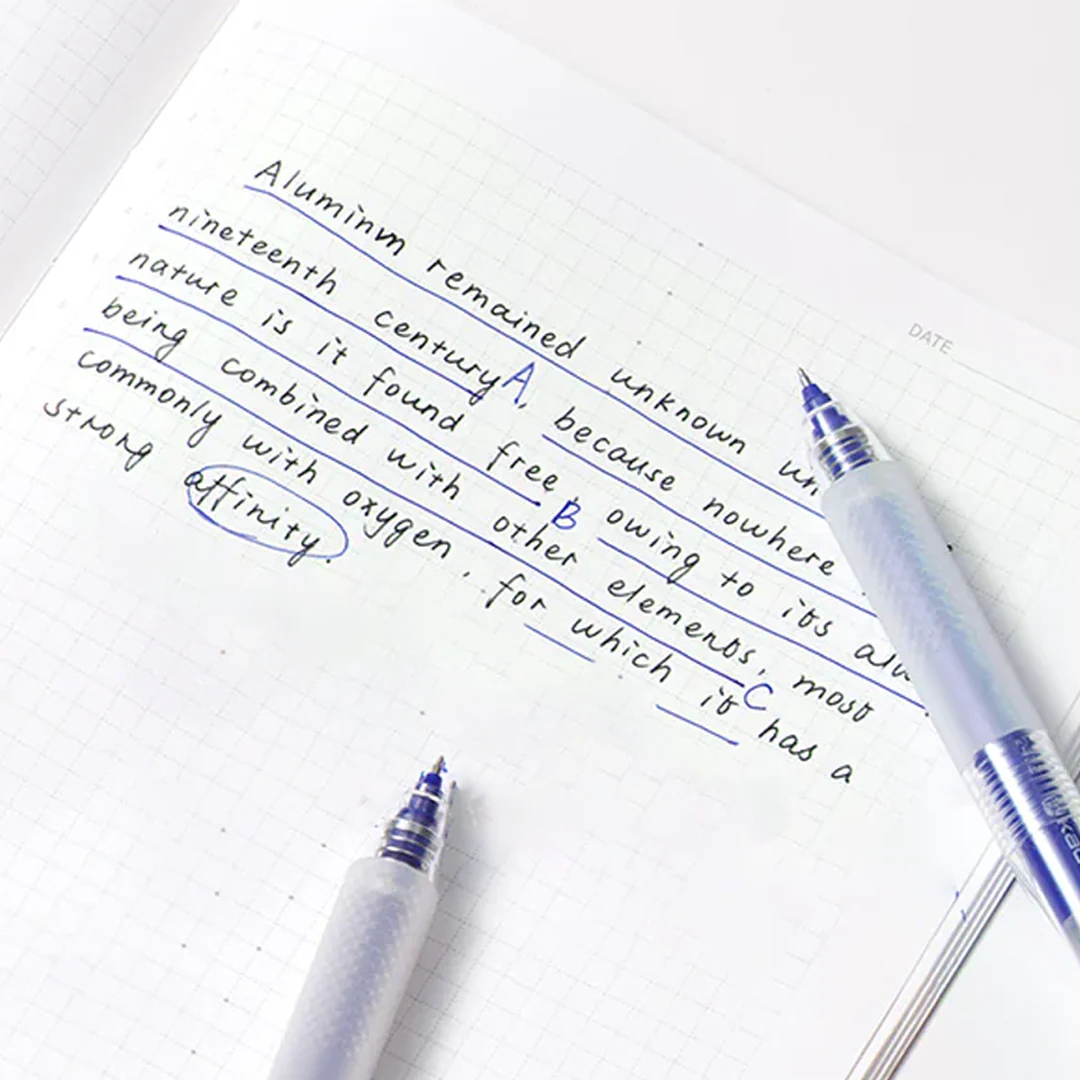 DATE
Aluminm remained unknown un
nineteenth century A, because nowhere
nature is it found free, B owing to its alw
being combined with other elements, C most
commonly with oxygen, for which it has a
strong affinity.